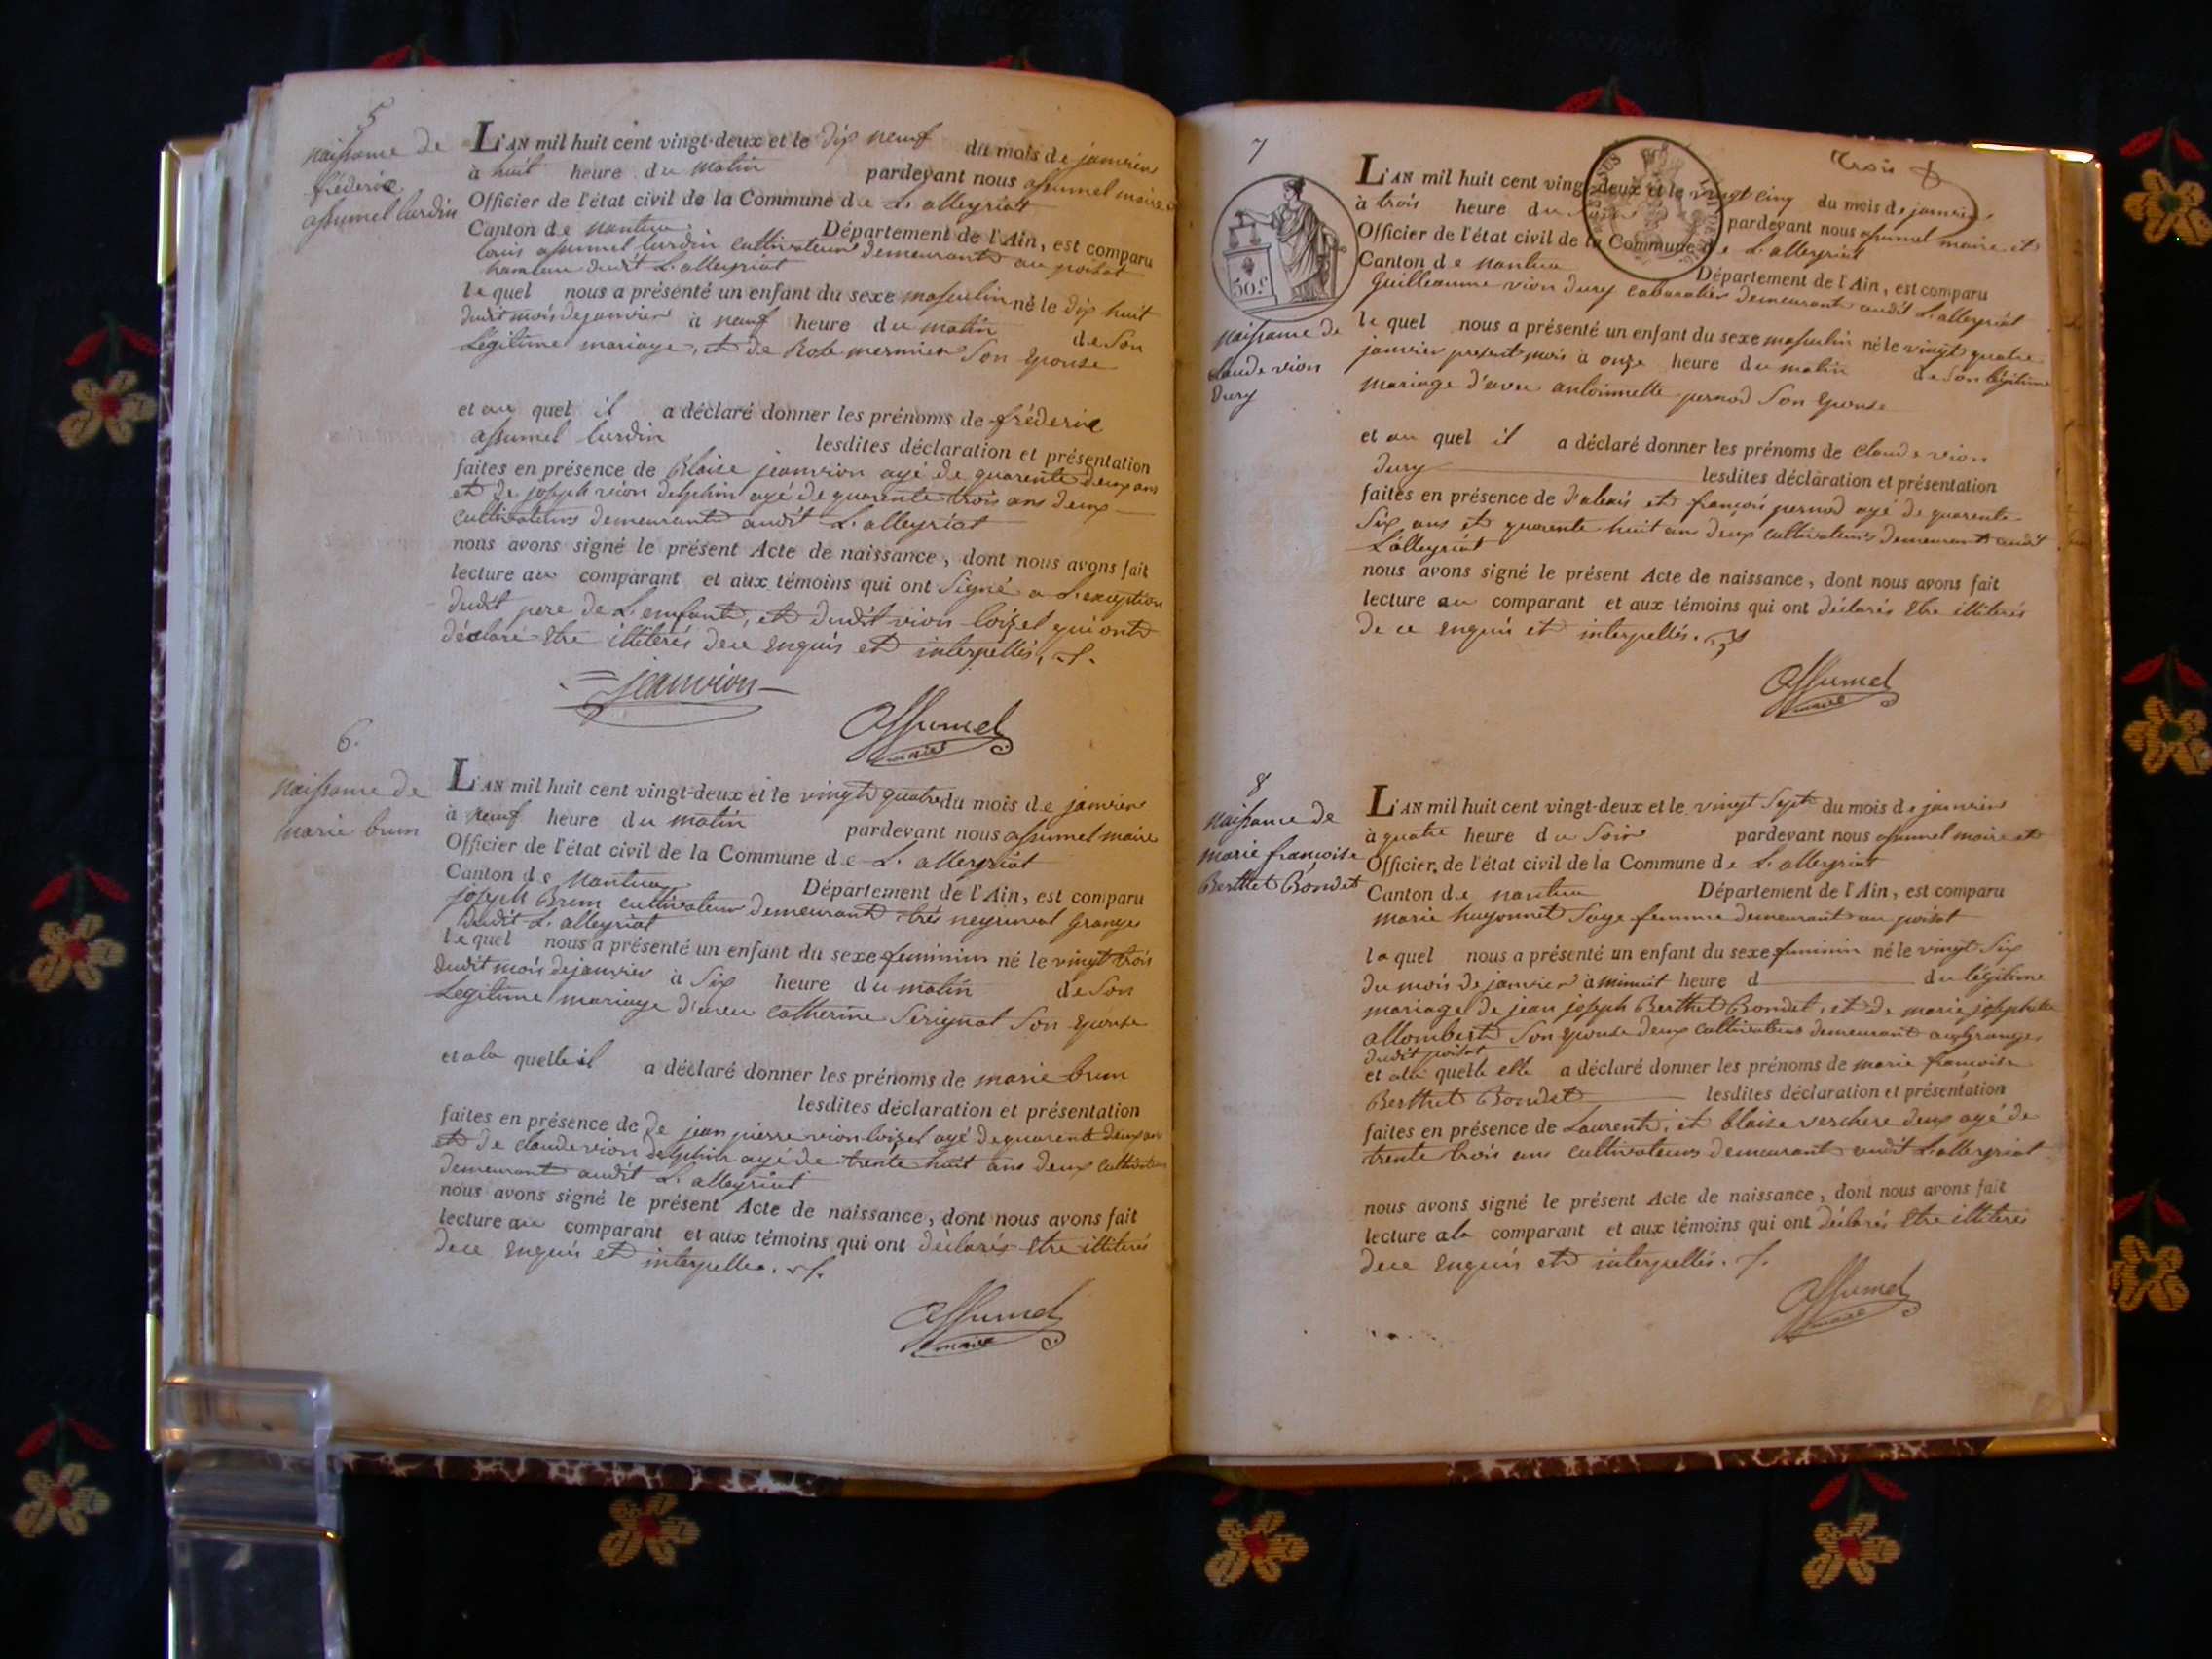 5
naissance de
fréderic
assumel lurdin
L'AN mil huit cent vingt-deux et le dix neuf du mois de janvier
à huit heure du matin pardevant nous assumel maire et
Officier de l'état civil de la Commune de L'alleyriat
Canton de nantua Département de l'Ain, est comparu
louis assumel lurdin cultivateur demeurant au poisat
hameau dudit L'alleyriat
lequel nous a présenté un enfant du sexe masculin né le dix huit
dudit mois de janvier à neuf heure du matin de son
Légitime mariage, et de Rose mermier son épouse
et au quel il a déclaré donner les prénoms de fréderic
assumel lurdin lesdites déclaration et présentation
faites en présence de Blaise jeanvion agé de quarente deux ans
et de joseph vion delphin agé de quarente trois ans deux
cultivateurs demeurant audit L'alleyriat
nous avons signé le présent Acte de naissance, dont nous avons fait
lecture au comparant et aux témoins qui ont signé a L'exception
dudit pere de L'enfant, et dudit vion loizel qui ont
déclaré Etre illiterés de ce enquis et interpellés.
jeanvion
Assumel
maire
6.
naissance de
marie brun
L'AN mil huit cent vingt-deux et le vingt quatre du mois de janvier
à neuf heure du matin pardevant nous assumel maire
Officier de l'état civil de la Commune de L'alleyriat
Canton de Nantua Département de l'Ain, est comparu
joseph Brun cultivateur demeurant granges
dudit L'alleyriat
lequel nous a présenté un enfant du sexe feminin né le vingt trois
dudit mois de janvier à six heure du matin de son
Légitime mariage d'avec Catherine Serignat son épouse
et a la quelle il a déclaré donner les prénoms de marie brun
lesdites déclaration et présentation
faites en présence de De jean pierre vion loizel agé de quarente deux ans
et de claude vion delphin agé de trente huit ans deux cultivateurs
demeurant audit L'alleyriat
nous avons signé le présent Acte de naissance, dont nous avons fait
lecture au comparant et aux témoins qui ont déclarés Etre illiterés
de ce enquis et interpellés.
Assumel
maire
7
Trois
50 c
naissance de
claude vion
Dury
L'AN mil huit cent vingt-deux et le vingt cinq du mois de janvier
à trois heure du soir pardevant nous assumel maire et
Officier de l'état civil de la Commune de L'alleyriat
Canton de Nantua Département de l'Ain, est comparu
Guilleaume vion Dury cabaratier demeurant audit L'alleyriat
lequel nous a présenté un enfant du sexe masculin né le vingt quatre
janvier present mois à onze heure du matin de son légitime
mariage d'avec antoinnette pernod son épouse
et au quel il a déclaré donner les prénoms de claude vion
Dury lesdites déclaration et présentation
faites en présence de et françois pernod agé de quarente
six ans et quarente huit ans deux cultivateurs demeurant audit
L'alleyriat
nous avons signé le présent Acte de naissance, dont nous avons fait
lecture au comparant et aux témoins qui ont déclarés Etre illiterés
de ce enquis et interpellés.
Assumel
maire
8
naissance de
marie françoise
Berthet Bondet
L'AN mil huit cent vingt-deux et le vingt sept du mois de janvier
à quatre heure du soir pardevant nous assumel maire et
Officier de l'état civil de la Commune de L'alleyriat
Canton de nantua Département de l'Ain, est comparu
marie hugonnet sage femme demeurant au poisat
laquel nous a présenté un enfant du sexe feminin né le vingt six
du mois de janvier à minuit heure d du légitime
mariage de jean joseph Berthet Bondet, et de marie josephtte
allombert son épouse deux cultivateurs demeurant aux granges
dudit poisat
et a la quelle elle a déclaré donner les prénoms de marie françoise
Berthet Bondet lesdites déclaration et présentation
faites en présence de Laurent, et blaise verchere deux agé de
trente trois ans cultivateurs demeurant audit L'alleyriat
nous avons signé le présent Acte de naissance, dont nous avons fait
lecture a la comparant et aux témoins qui ont déclarés Etre illiterés
de ce enquis et interpellés.
Assumel
maire